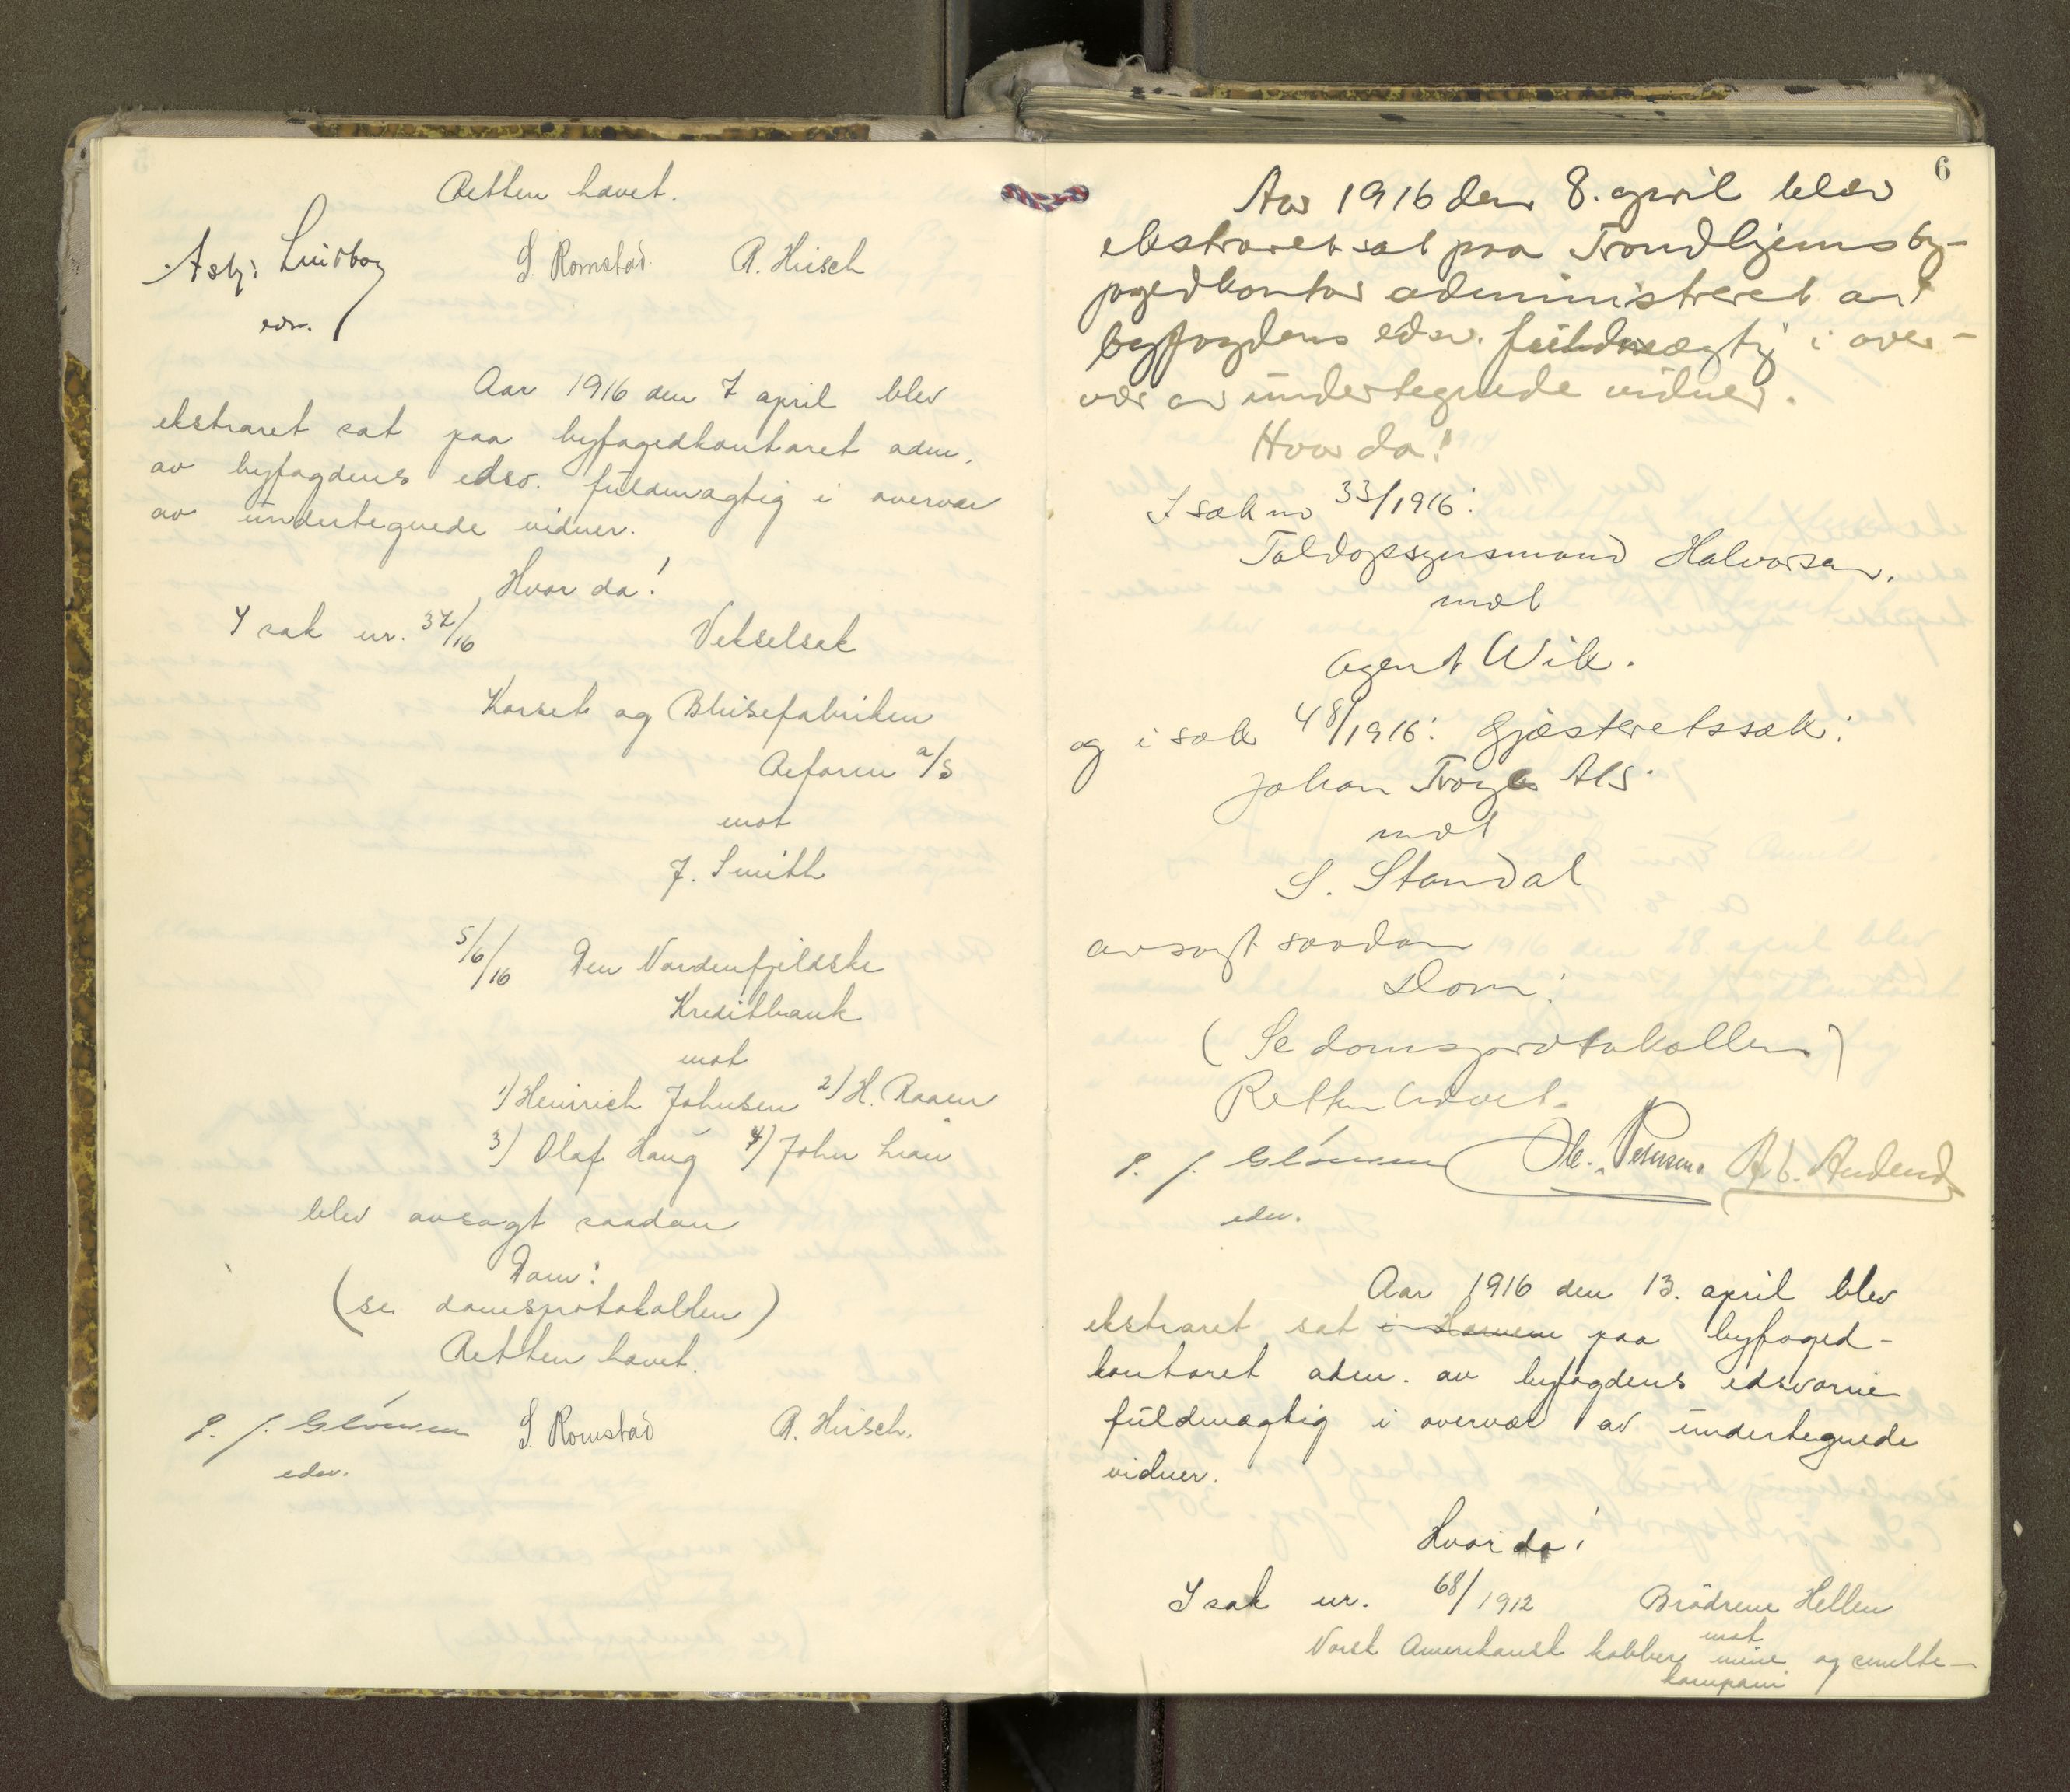 Retten hævet.
Asbj: Lindboy S. Romstad. R. Hirsch
edsv.
Aar 1916 den 7 april blev
ekstraret sat paa byfogedkontoret adm.
av byfogdens edsv. fuldmægtig i overvær
av undertegnede vidner.
Hvor da!
I sak nr. 37/16 Vekselsak
Korset og Blusefabriken
Reform a/s
mot
J. Smith
5/6/16 Den Nordenfjeldske
Kreditbank
mot
1) Heinrich Johnsen 2) H. Raaen
3) Olaf Haug 4) John Lian
blev avsagt saadan
Dom:
(se domsprotokollen)
Retten hævet.
S. Romstad R. Hirsch.
edsv.
6
Aar 1916 den 8. april blev
ekstraret sat paa Trondhjems by-
fogedkontor administreret av
byfogdens edsv. fuldmægtig i over-
vær av undertegnede vidner.
Hvor da!
I sak no 33/1916:
Toldopsynsmand Halvorsen.
mot
Agent Wik.
og i sak 48/1916: Gjæsteretssak:
Johan Troye A/S
mot
S. Standal
avsagt saadan
Dom:
(Se domsprotokollen)
Retten hævet.
Ole Petersen
edsv.
Aar 1916 den 13. april blev
ekstraret sat i paa byfoged-
kontoret adm. av byfogdens edsvorne
fuldmægtig i overvær av undertegnede
vidner.
Hvor da!
I sak nr. 68/1912 Brödrene Hellen
mot
Norsk Amerikansk kobber mine og smelte-
kompani